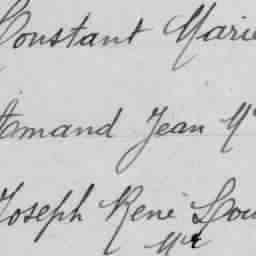 Constant Marie
Amand Jean M
Joseph René Lou
Mle